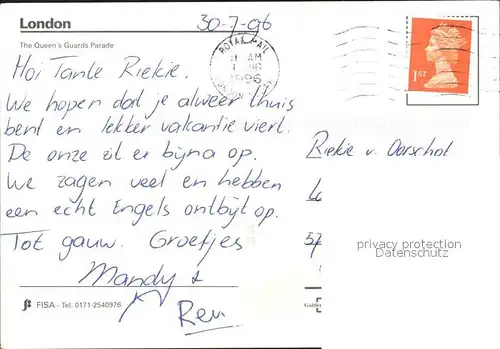 London
30-7-96
The Queen's Guards Parade
ROYAL MAIL
AM
1996
1ST
Hoi Tante Riekie.
We hopen dat je alweer thuis
bent en lekker vakantie viert.
De onze zit er bijna op.
We zagen veel en hebben
een echt Engels ontbijt op.
Tot gauw. Groetjes
Mandy &
Riekie v. Oorschot
57
privacy protection
Datenschutz
FISA - Tel. 0171-2540976